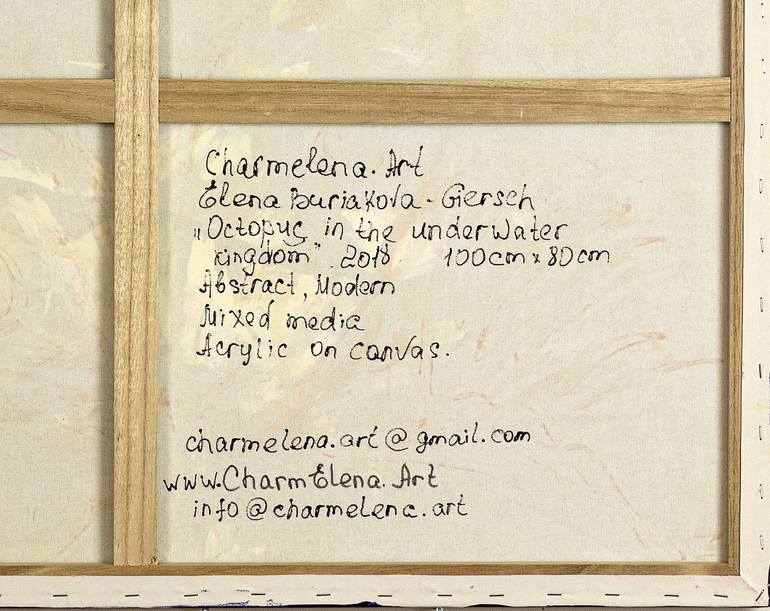 Charmelena. Art
Elena Buriakova - Giersch
„Octopus in the underwater
kingdom" 2018. 100cm x 80cm
Abstract, Modern
Mixed media
Acrylic on canvas.
charmelena.art@gmail.com
www.CharmElena.Art
info@charmelena.art